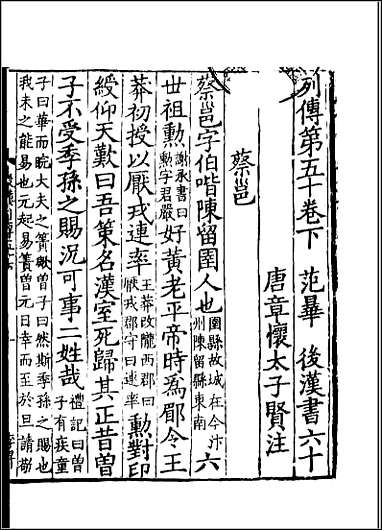 列傳第五十卷下　范曄　後漢書六十
唐章懷太子賢注
蔡邕
蔡邕字伯喈陳留圉人也圉縣故城在今汴州陳留縣東南六
世祖勳謝承書曰勳字君嚴好黃老平帝時爲郿令王
莽初授以厭戎連率王莽改隴西郡曰厭戎郡守曰連率勳對印
綬仰天歎曰吾策名漢室死歸其正昔曾
子不受季孫之賜況可事二姓哉禮記曰曾子有疾童
子曰華而睆大夫之簀歟曾子曰然斯季孫之賜也
我未之能易也元起易簀曾元曰幸而至於旦請敬